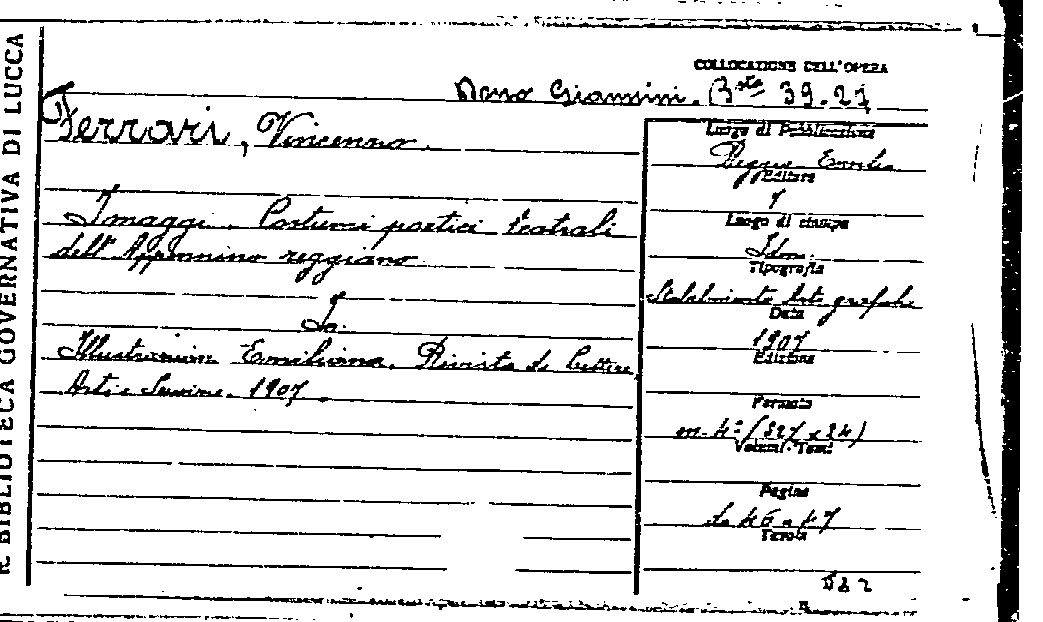 R. BIBLIOTECA GOVERNATIVA DI LUCCA
COLLOCAZIONE DELL'OPERA
Giannini. 39.27
Ferrari, Vincenzo
Imaggi. Costumi poetici teatrali
dell'Appennino reggiano
In.
Illustrazione Emiliana. Rivista di Lettere,
Arti e Scienze. 1907.
Luogo di Pubblicazione
Reggio Emilia
Editore
Luogo di stampa
Idem.
Tipografia
Stabilimento Arti grafiche
Data
1907
Edizione
Formato
in-4° (327 x 24)
Volumi-Tomi
Pagine
da 46 a 47
Tavole